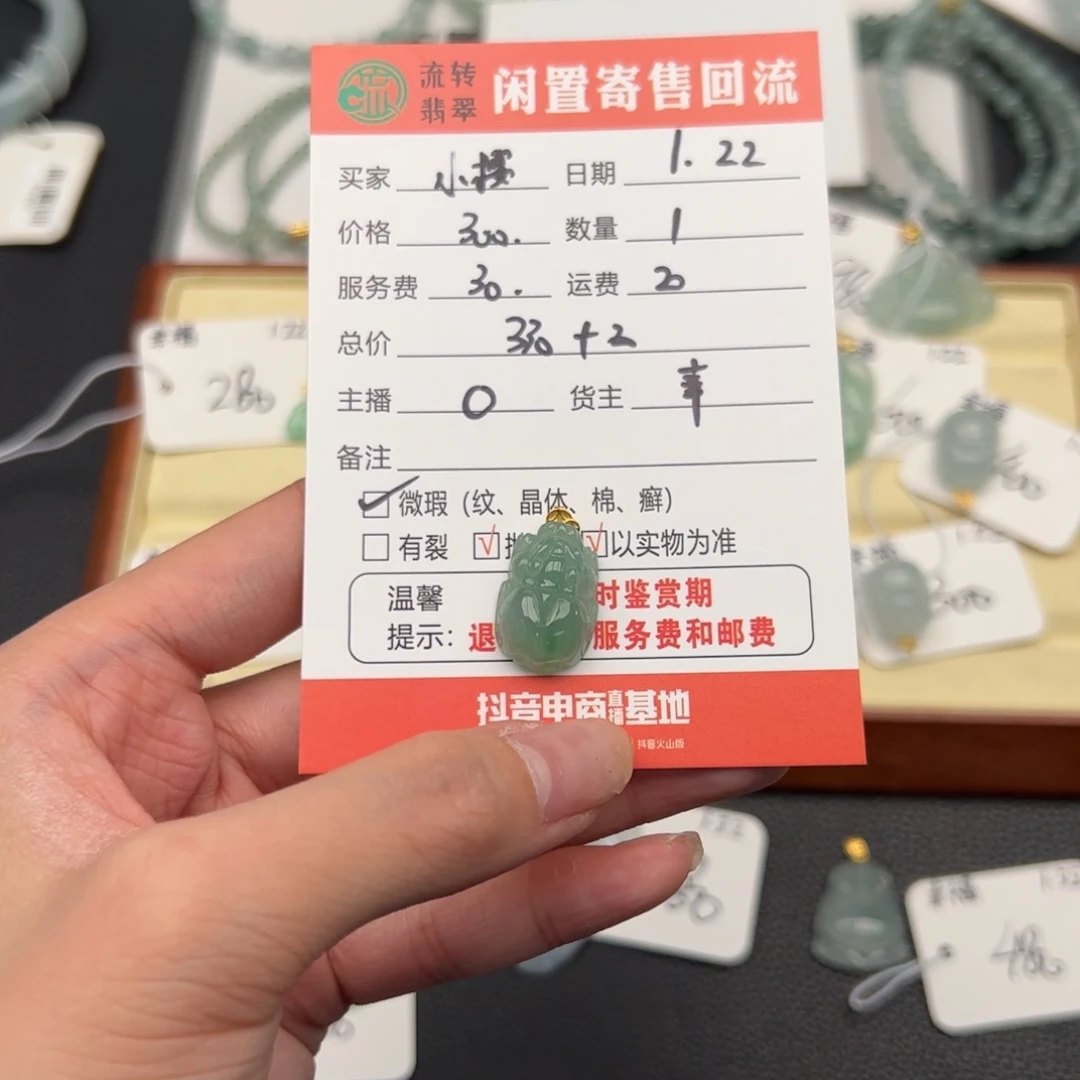 流转翡翠 闲置寄售回流
买家 小 日期 1.22
价格 300. 数量 1
服务费 30. 运费 20
总价 330 + 2
主播 0 货主
备注
微瑕（纹、晶体、棉、癣）
有裂 以实物为准
温馨 时鉴赏期
提示：退 服务费和邮费
抖音电商直播基地
抖音火山版
280
480